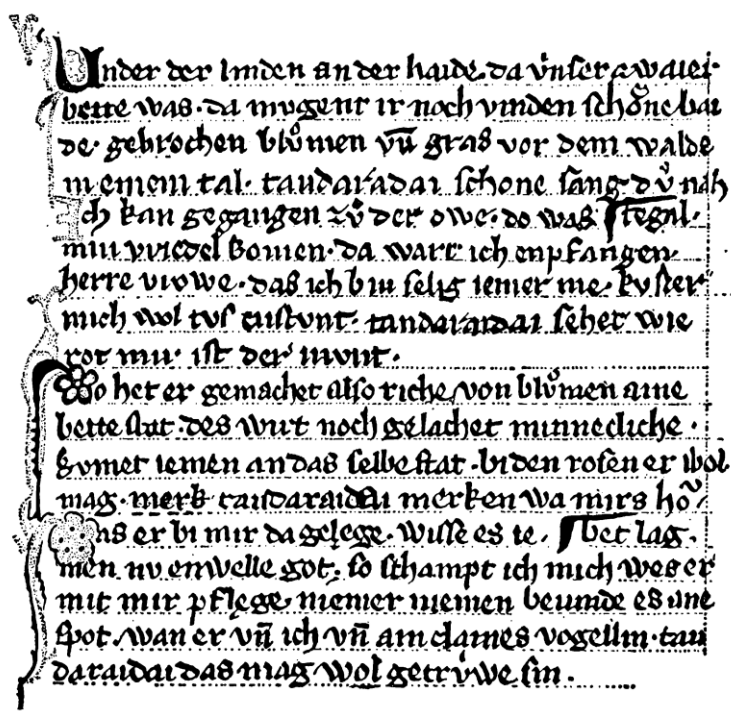 Under der linden an der haide. da ůnser zwaier
bette was. da mugent ir noch vinden schŏne bai
de. gebrochen blůmen vn̄ gras vor dem walde
in einem tal. tandaradai schone sang dv̊ nah
Ich kan gegangen zů der owe. do was tegal.
min vriedel komen. da wart ich enpfangen
herre vrowe. das ich bin selig iemer me. kvster
mich wol tvsentstvnt. tandaraidai sehet wie
rot mir ist der mvnt.
Do het er gemachet also riche von blůmen aine
bette stat. des wirt noch gelachet minnecliche.
kvmet iemen an das selbe stat. bi den rosen er wol
mag. merk tandaraidai merken wa mirs ho
Das er bi mir da gelege. wisse es ie. bet lag.
men. nv enwelle got. so schampt ich mich. wes er
mit mir pflege. niemer niemen bevinde es ane
spot. wan er vn̄ ich vn̄ ain claines vogellin. tan
daraidai das mag wol getrv̊we sin.